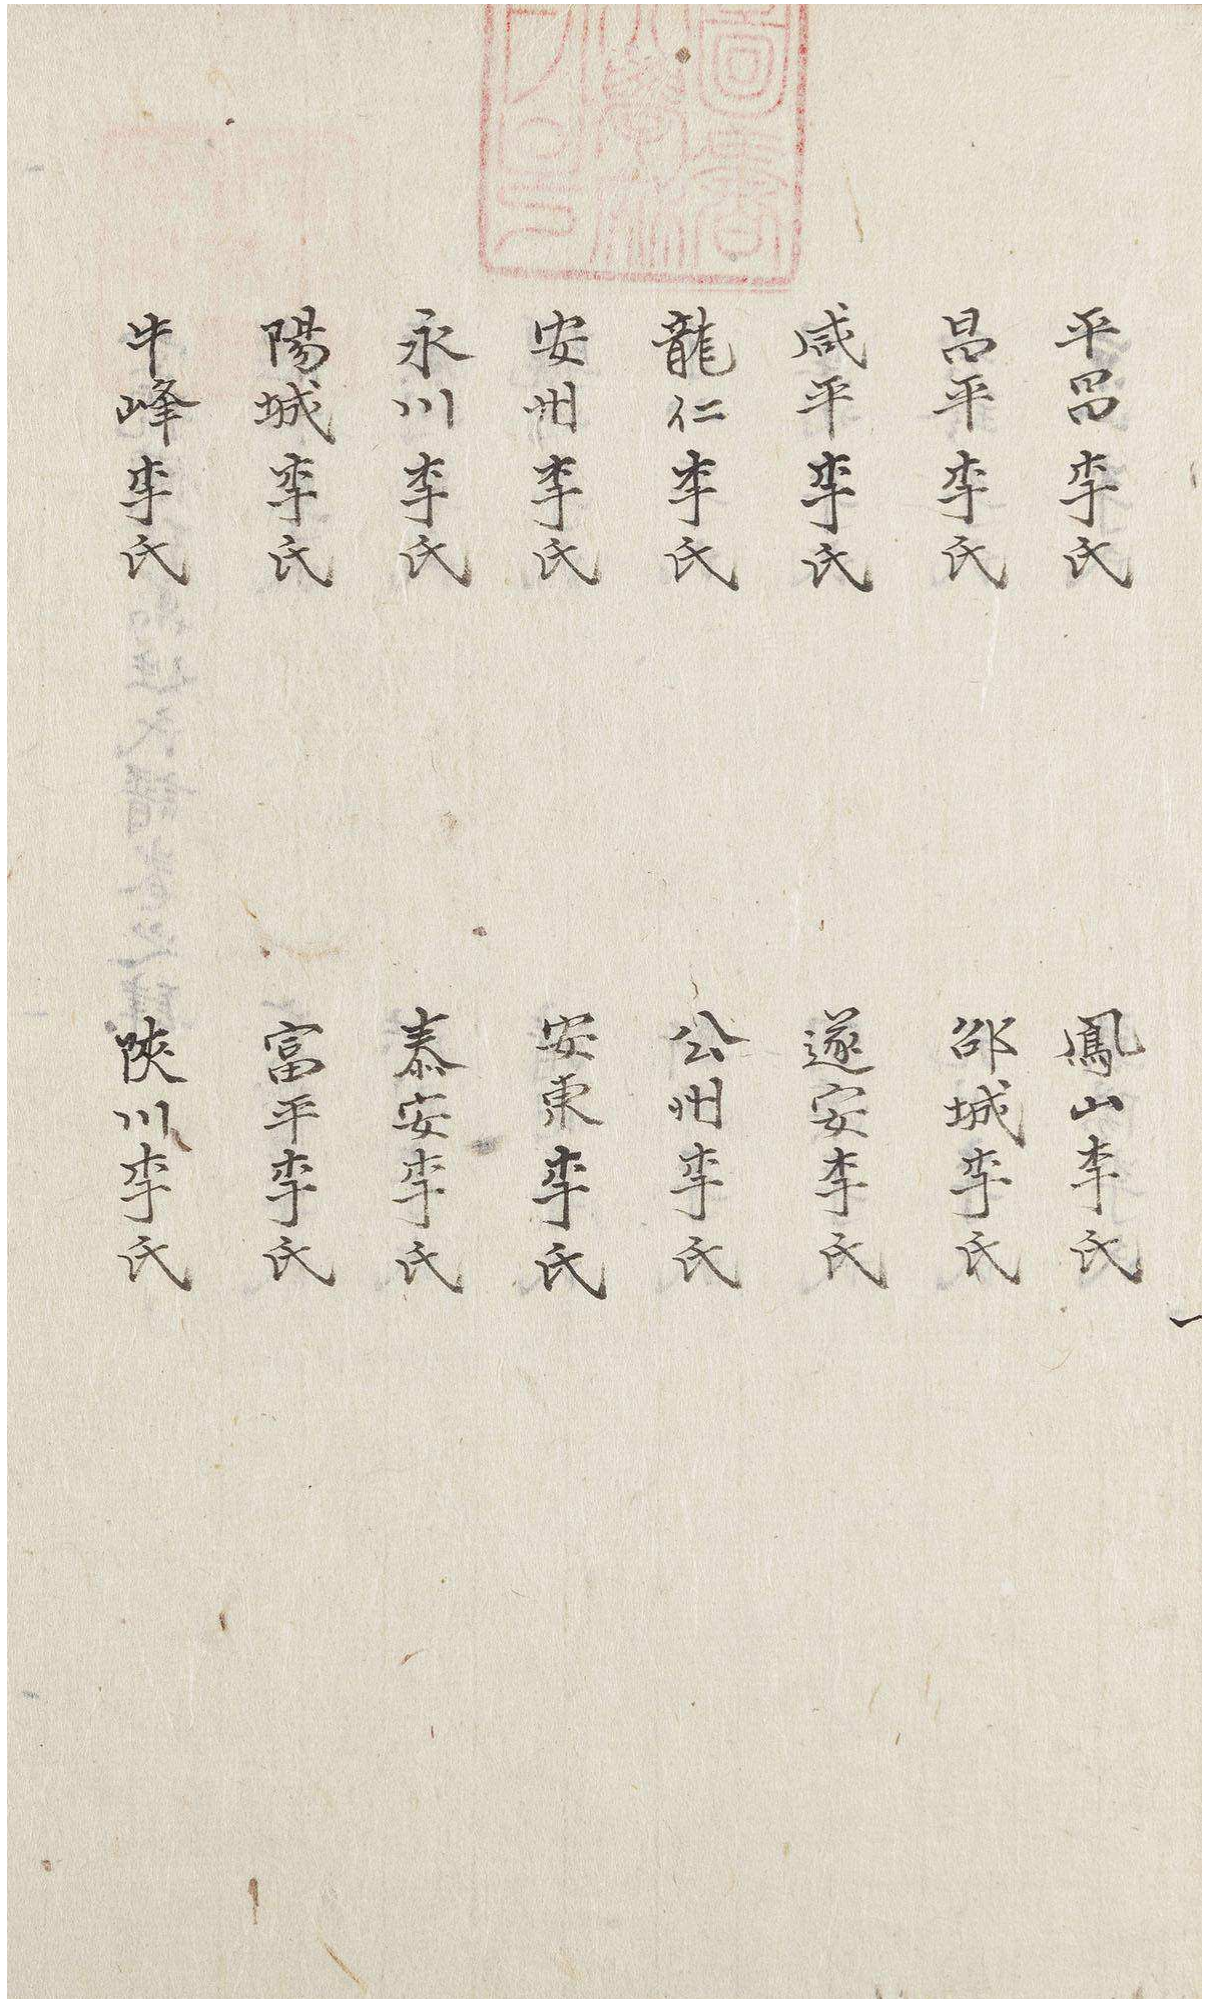 平昌李氏
昌平李氏
咸平李氏
龍仁李氏
安州李氏
永川李氏
陽城李氏
牛峰李氏
鳳山李氏
邵城李氏
遂安李氏
公州李氏
安東李氏
泰安李氏
富平李氏
陜川李氏